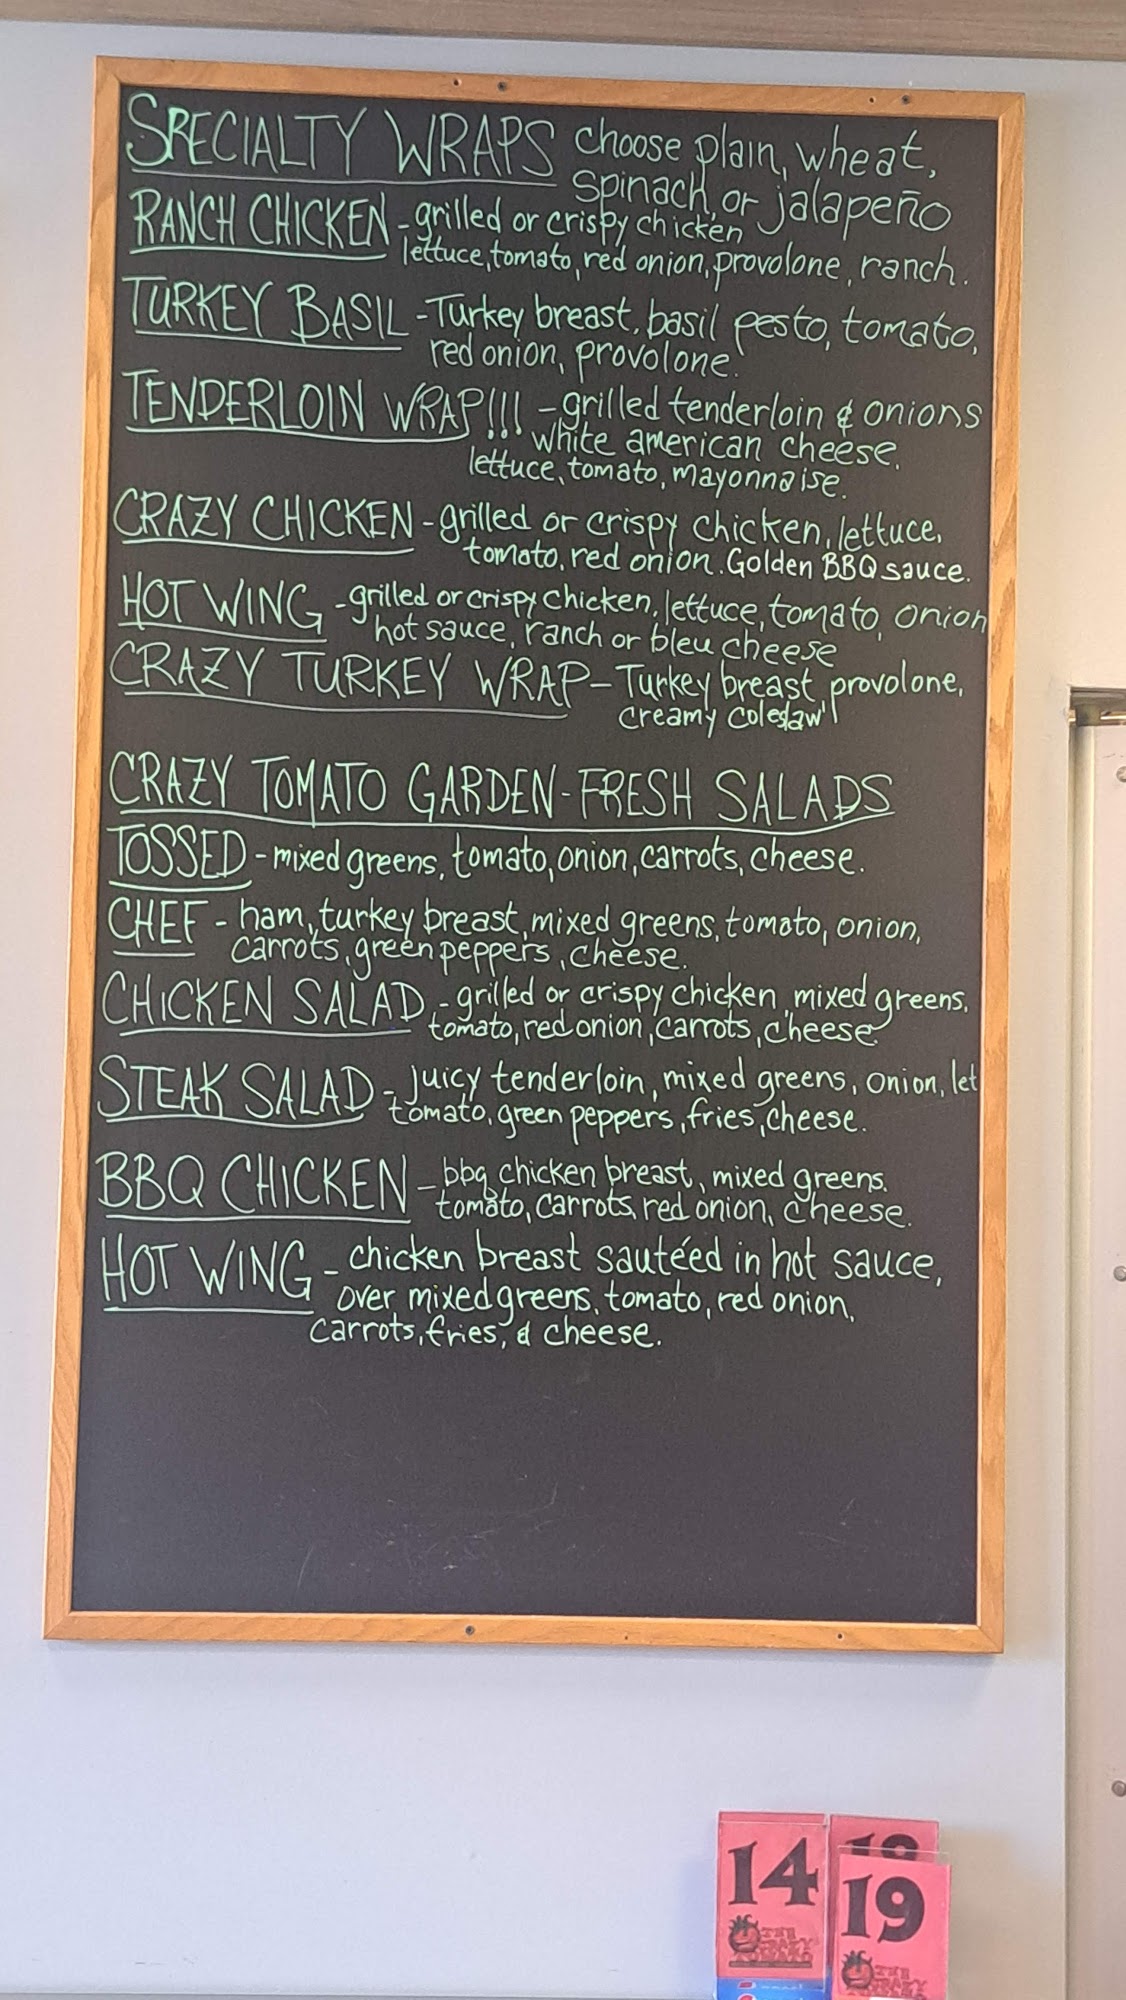 SPECIALTY WRAPS choose plain, wheat,
spinach, or jalapeño
RANCH CHICKEN - grilled or crispy chicken
lettuce, tomato, red onion, provolone, ranch.
TURKEY BASIL - Turkey breast, basil pesto, tomato,
red onion, provolone.
TENDERLOIN WRAP!!! - grilled tenderloin & onions
white american cheese.
lettuce, tomato, mayonnaise.
CRAZY CHICKEN - grilled or crispy chicken, lettuce,
tomato, red onion. Golden BBQ sauce.
HOT WING - grilled or crispy chicken, lettuce, tomato, onion
hot sauce, ranch or bleu cheese
CRAZY TURKEY WRAP - Turkey breast, provolone,
creamy coleslaw
CRAZY TOMATO GARDEN-FRESH SALADS
TOSSED - mixed greens, tomato, onion, carrots, cheese.
CHEF - ham, turkey breast, mixed greens, tomato, onion,
carrots, green peppers, cheese.
CHICKEN SALAD - grilled or crispy chicken, mixed greens,
tomato, red onion, carrots, cheese
STEAK SALAD - juicy tenderloin, mixed greens, onion, let
tomato, green peppers, fries, cheese.
BBQ CHICKEN - bbq chicken breast, mixed greens.
tomato, carrots, red onion, cheese.
HOT WING - chicken breast sautéed in hot sauce,
over mixed greens, tomato, red onion,
carrots, fries, & cheese.
14
19
THE
CRAZY
TOMATO
THE
CRAZY